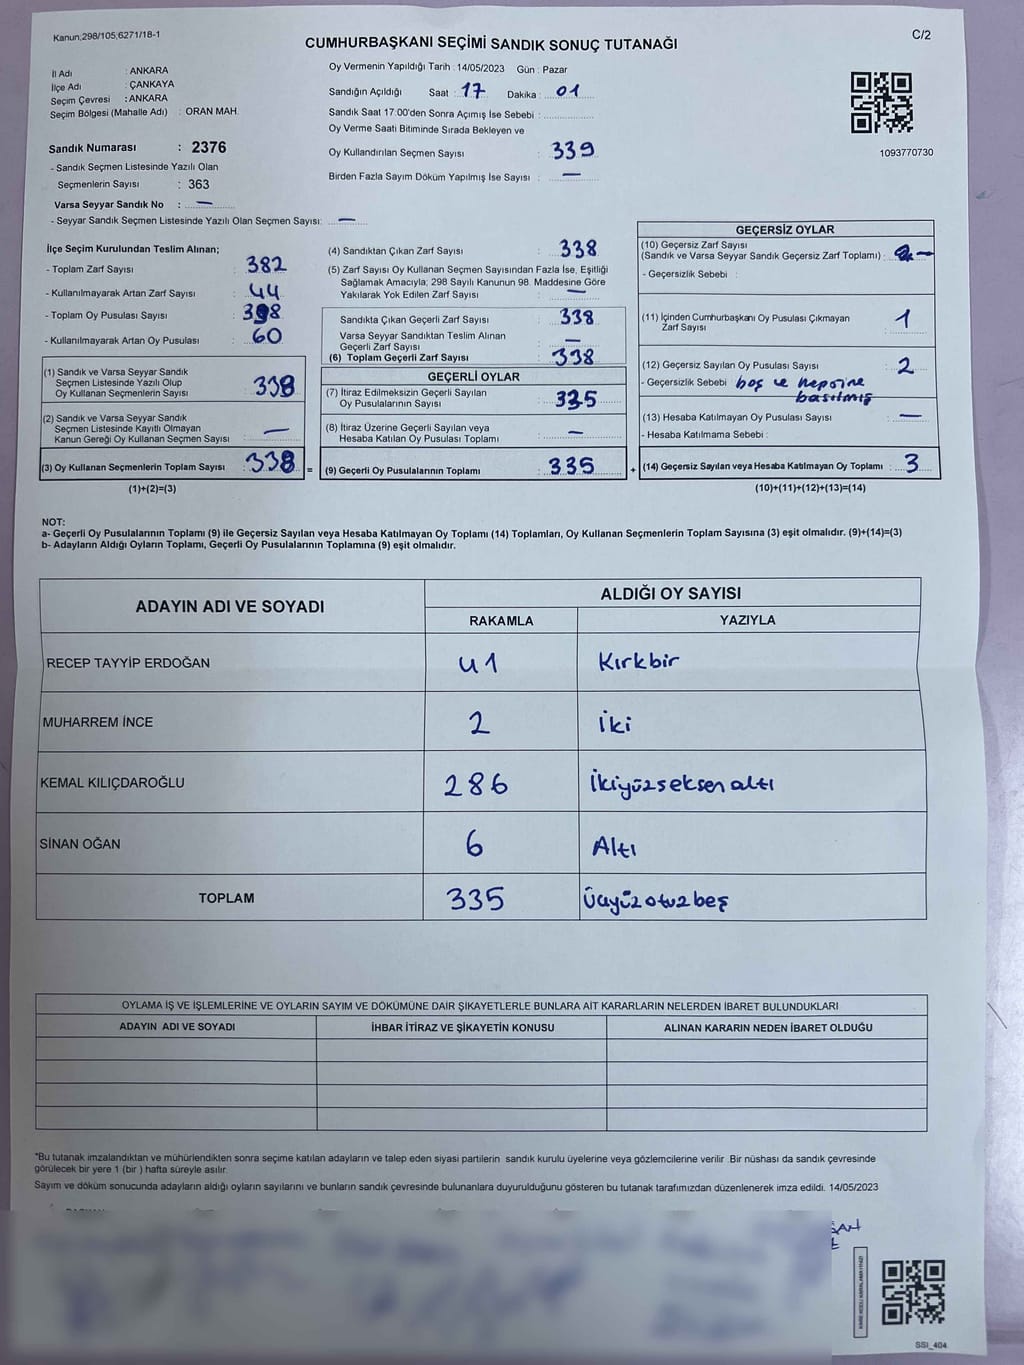 Kanun;298/105;6271/18-1
C/2
CUMHURBAŞKANI SEÇİMİ SANDIK SONUÇ TUTANAĞI
İl Adı : ANKARA
İlçe Adı : ÇANKAYA
Seçim Çevresi : ANKARA
Seçim Bölgesi (Mahalle Adı) : ORAN MAH.
Sandık Numarası : 2376
- Sandık Seçmen Listesinde Yazılı Olan
Seçmenlerin Sayısı : 363
Varsa Seyyar Sandık No : —
- Seyyar Sandık Seçmen Listesinde Yazılı Olan Seçmen Sayısı: —
Oy Vermenin Yapıldığı Tarih : 14/05/2023 Gün : Pazar
Sandığın Açıldığı Saat : 17 Dakika : 01
Sandık Saat 17:00'den Sonra Açımış İse Sebebi :
Oy Verme Saati Bitiminde Sırada Bekleyen ve
Oy Kullandırılan Seçmen Sayısı : 339
Birden Fazla Sayım Döküm Yapılmış İse Sayısı : —
1093770730
İlçe Seçim Kurulundan Teslim Alınan;
- Toplam Zarf Sayısı : 382
- Kullanılmayarak Artan Zarf Sayısı : 44
- Toplam Oy Pusulası Sayısı : 398
- Kullanılmayarak Artan Oy Pusulası : 60
(1) Sandık ve Varsa Seyyar Sandık
Seçmen Listesinde Yazılı Olup
Oy Kullanan Seçmenlerin Sayısı : 338
(2) Sandık ve Varsa Seyyar Sandık
Seçmen Listesinde Kayıtlı Olmayan
Kanun Gereği Oy Kullanan Seçmen Sayısı : —
(3) Oy Kullanan Seçmenlerin Toplam Sayısı : 338
(1)+(2)=(3)
(4) Sandıktan Çıkan Zarf Sayısı : 338
(5) Zarf Sayısı Oy Kullanan Seçmen Sayısından Fazla İse, Eşitliği
Sağlamak Amacıyla; 298 Sayılı Kanunun 98. Maddesine Göre
Yakılarak Yok Edilen Zarf Sayısı : —
Sandıkta Çıkan Geçerli Zarf Sayısı : 338
Varsa Seyyar Sandıktan Teslim Alınan
Geçerli Zarf Sayısı : —
(6) Toplam Geçerli Zarf Sayısı : 338
GEÇERLİ OYLAR
(7) İtiraz Edilmeksizin Geçerli Sayılan
Oy Pusulalarının Sayısı : 335
(8) İtiraz Üzerine Geçerli Sayılan veya
Hesaba Katılan Oy Pusulası Toplamı : —
= (9) Geçerli Oy Pusulalarının Toplamı : 335
GEÇERSİZ OYLAR
(10) Geçersiz Zarf Sayısı
(Sandık ve Varsa Seyyar Sandık Geçersiz Zarf Toplamı) : —
- Geçersizlik Sebebi :
(11) İçinden Cumhurbaşkanı Oy Pusulası Çıkmayan
Zarf Sayısı : 1
(12) Geçersiz Sayılan Oy Pusulası Sayısı : 2
- Geçersizlik Sebebi : boş ve hepsine
basılmış
(13) Hesaba Katılmayan Oy Pusulası Sayısı : —
- Hesaba Katılmama Sebebi :
+ (14) Geçersiz Sayılan veya Hesaba Katılmayan Oy Toplamı : 3
(10)+(11)+(12)+(13)=(14)
NOT:
a- Geçerli Oy Pusulalarının Toplamı (9) ile Geçersiz Sayılan veya Hesaba Katılmayan Oy Toplamı (14) Toplamları, Oy Kullanan Seçmenlerin Toplam Sayısına (3) eşit olmalıdır. (9)+(14)=(3)
b- Adayların Aldığı Oyların Toplamı, Geçerli Oy Pusulalarının Toplamına (9) eşit olmalıdır.
ADAYIN ADI VE SOYADI
ALDIĞI OY SAYISI
RAKAMLA YAZIYLA
RECEP TAYYİP ERDOĞAN 41 Kırkbir
MUHARREM İNCE 2 İki
KEMAL KILIÇDAROĞLU 286 İkiyüzseksenaltı
SİNAN OĞAN 6 Altı
TOPLAM 335 Üçyüzotuzbeş
OYLAMA İŞ VE İŞLEMLERİNE VE OYLARIN SAYIM VE DÖKÜMÜNE DAİR ŞİKAYETLERLE BUNLARA AİT KARARLARIN NELERDEN İBARET BULUNDUKLARI
ADAYIN ADI VE SOYADI İHBAR İTİRAZ VE ŞİKAYETİN KONUSU ALINAN KARARIN NEDEN İBARET OLDUĞU
*Bu tutanak imzalandıktan ve mühürlendikten sonra seçime katılan adayların ve talep eden siyasi partilerin sandık kurulu üyelerine veya gözlemcilerine verilir .Bir nüshası da sandık çevresinde
görülecek bir yere 1 (bir ) hafta süreyle asılır.
Sayım ve döküm sonucunda adayların aldığı oyların sayılarını ve bunların sandık çevresinde bulunanlara duyurulduğunu gösteren bu tutanak tarafımızdan düzenlenerek imza edildi. 14/05/2023
SSI_404